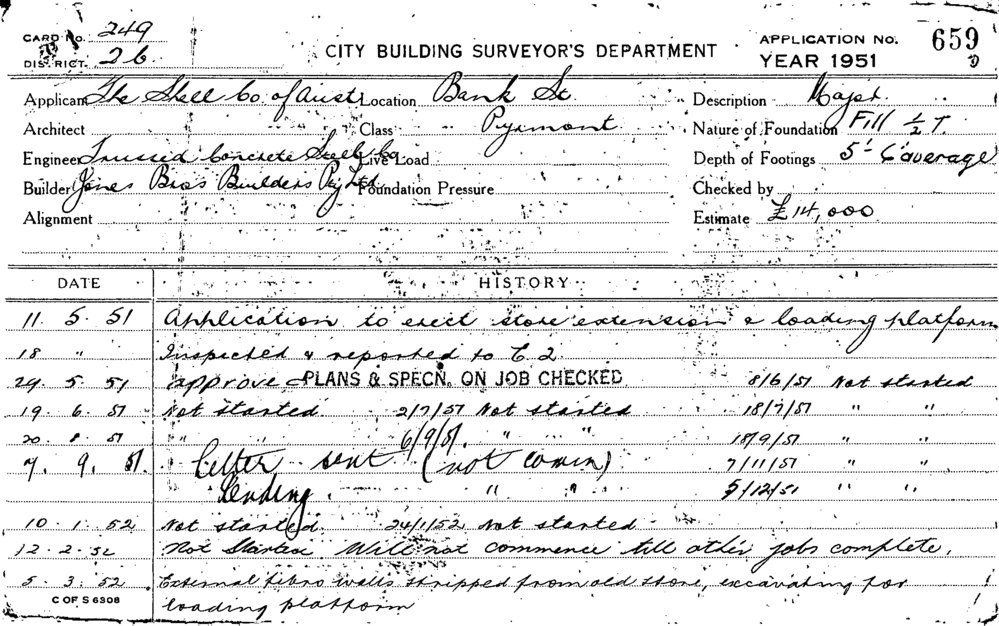 CARD No. 249
DISTRICT. 26
CITY BUILDING SURVEYOR'S DEPARTMENT
APPLICATION No. 659
YEAR 1951
Applicant The Shell Co of Aust Location Bank St Description Major
Architect Class Pyrmont Nature of Foundation Fill 1/2 T.
Engineer Trussed Concrete Steel Co Live Load Depth of Footings 5' 6" average
Builder Jones Bros Builders Pty Ltd Foundation Pressure Checked by
Alignment Estimate £14,000
DATE HISTORY
11. 5. 51 Application to erect store extension & loading platform
18 " Inspected & reported to C.2.
29. 5. 51 approved PLANS & SPECN. ON JOB CHECKED 8/6/51 Not started
19. 6. 51 Not started. 2/7/51 Not started 18/7/51 " "
20. 8. 51 " " 6/9/51. " " 18/9/51 " "
7. 9. 51. Letter sent (not comm) 7/11/51 " "
" " 5/12/51 " "
10. 1. 52 Not started. 24/1/52 Not started.
12. 2. 52 Not Started Will not commence till other jobs complete.
5. 3. 52 External fibro walls stripped from old store, excavating for
loading platform
C OF S 6308